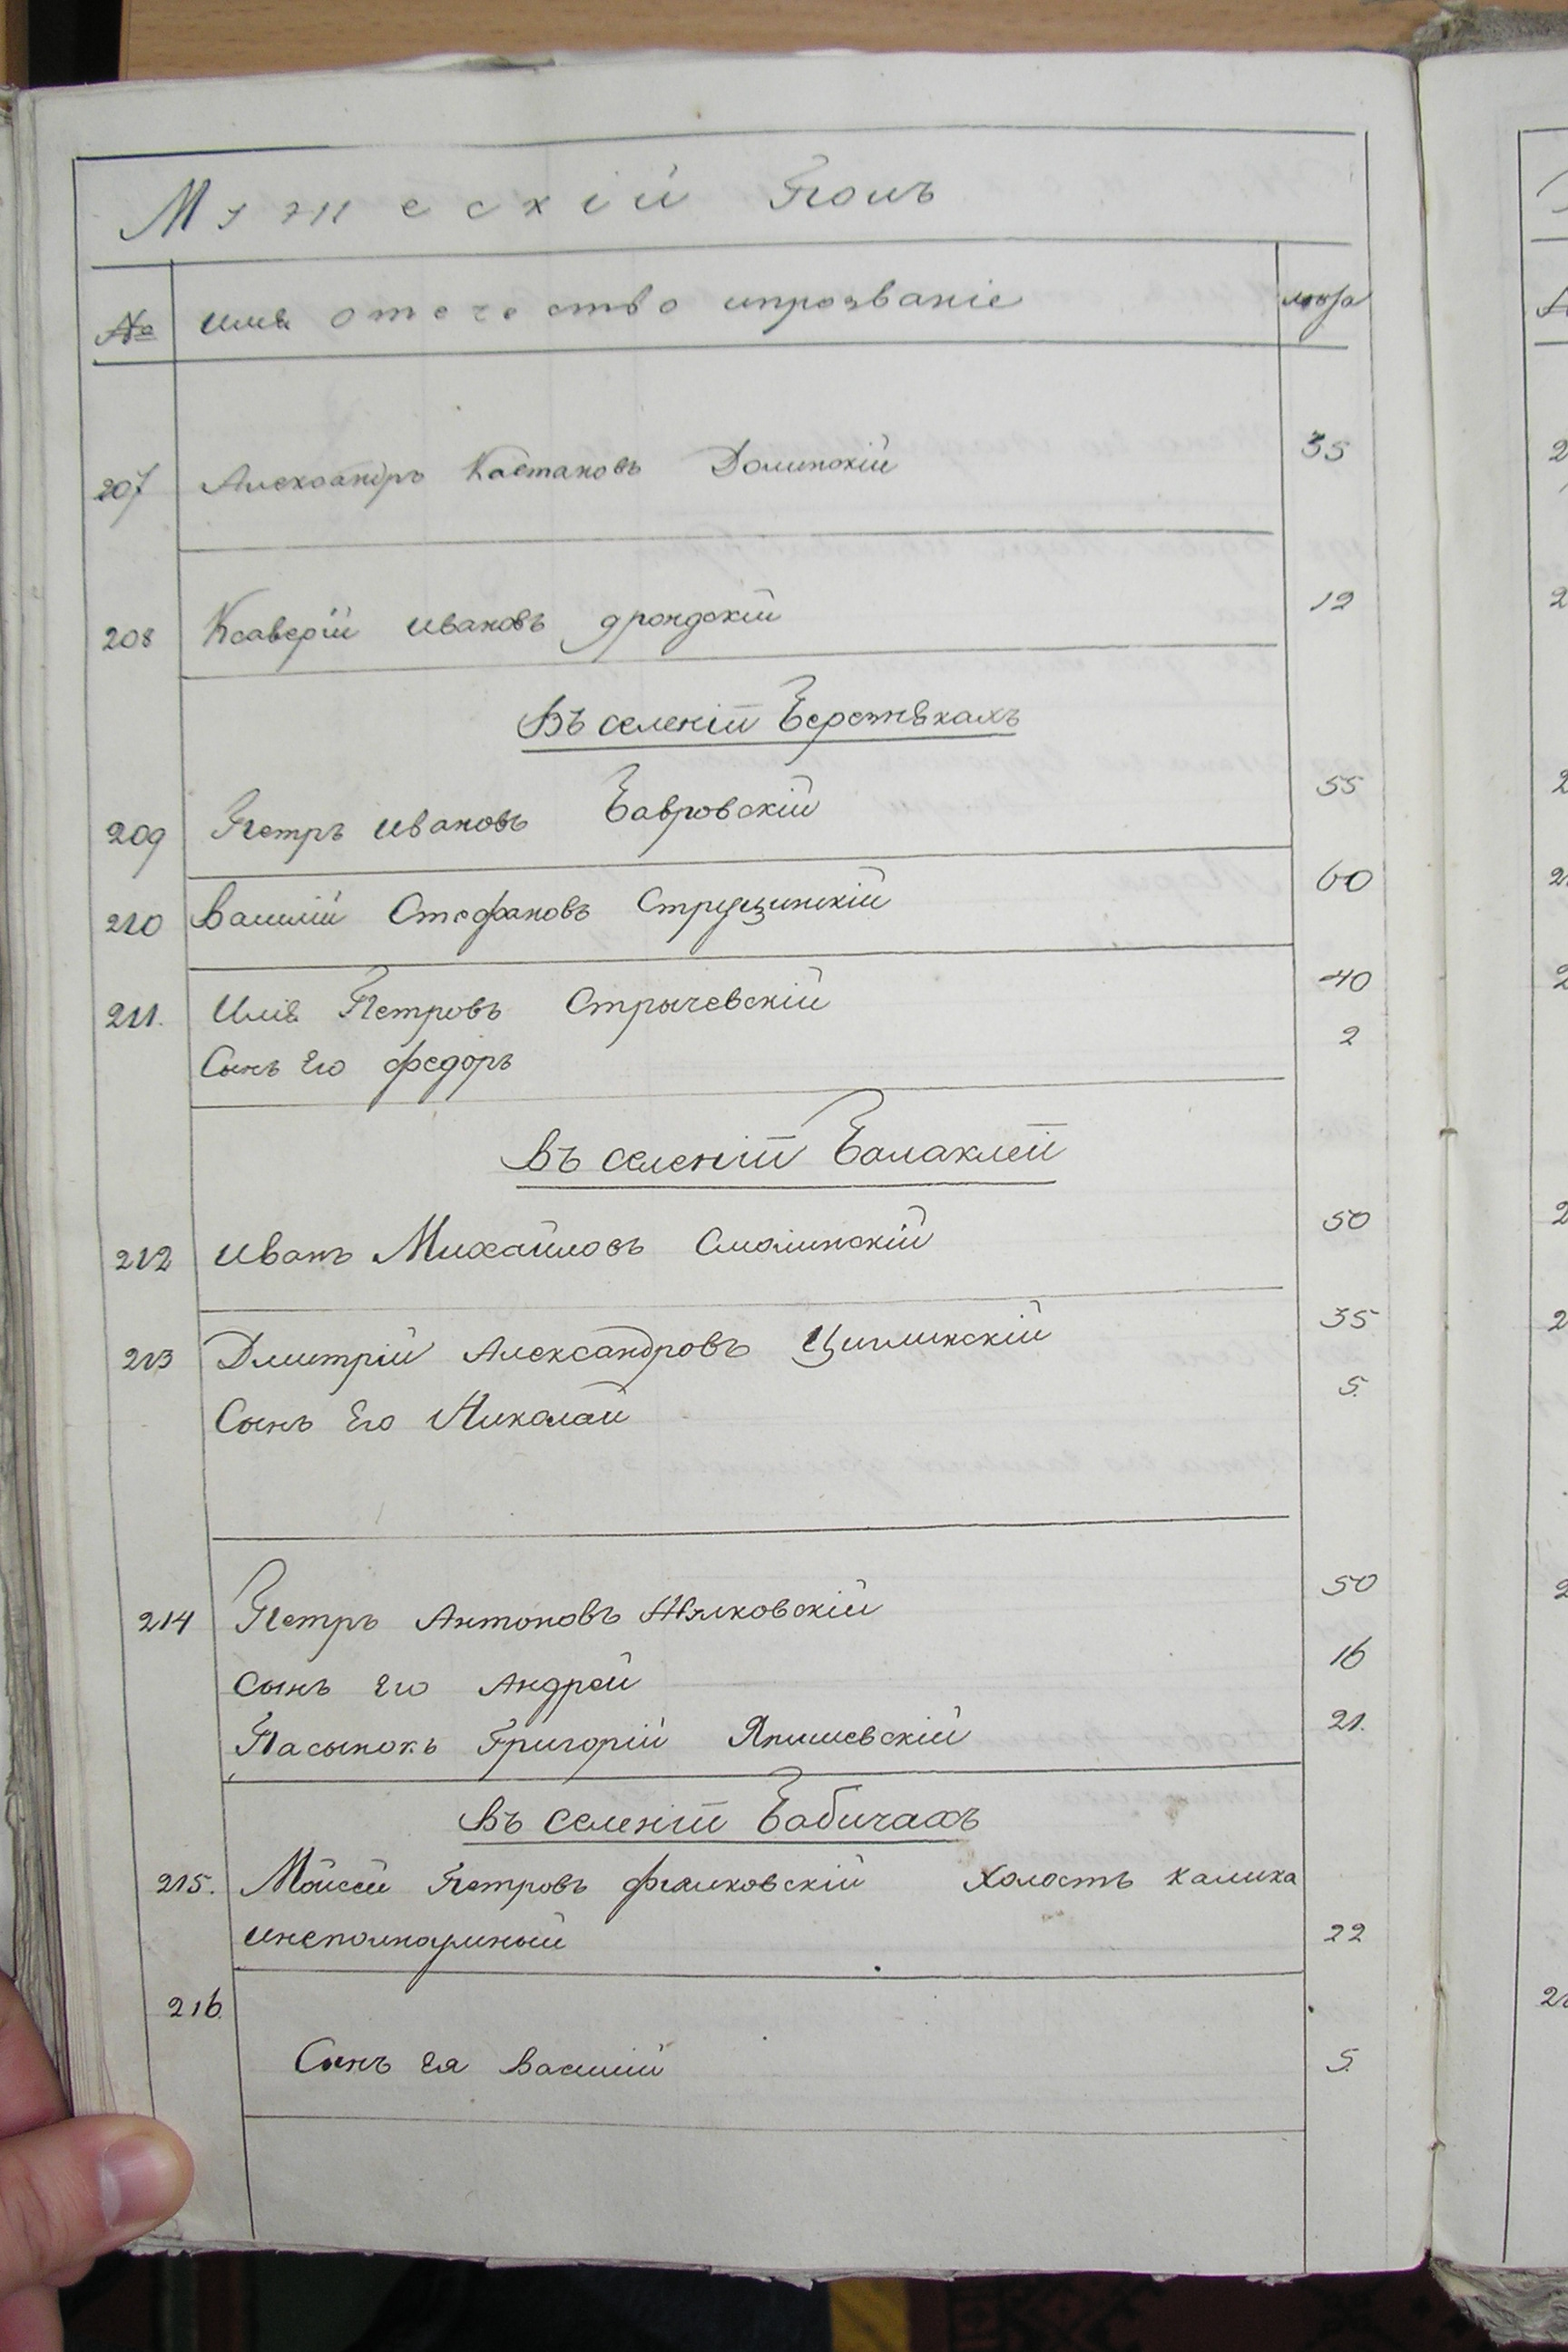 Мужескій Полъ
№ имя отечество ипрозваніе лета
207 Александръ Каетановъ Долинскій 35
208 Ксаверій Ивановъ дрондскій 12
Въ селеніи Бережнякахъ
209 Петръ Ивановъ Бавровскій 55
210 Василій Стефановъ Струщинскій 60
211. Илія Петровъ Стрычевскій 40
Сынъ Его Федоръ 2
Въ селеніи Балаклеи
212 Иванъ Михайловъ Смолинскій 50
213 Дмитрій Александровъ Циглинскій 35
Сынъ Его Николай 5.
214 Петръ Антоновъ 50
Сынъ Его Андрей 16
Пасынокъ Григорій Янишевскій 21.
Въ селеніи Бабичахъ
215. Моисей Петровъ Фіалковскій Холостъ калика
инеполноумный 22
216.
Сынъ Ея Василій 5.